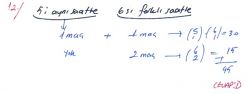 12/ 5i aynı saatte 6sı farklı saatte
1 maç + 1 maç → (5 1) (6 1) = 30
yok 2 maç → (6 2) = 15
+
45
CEVAP: D